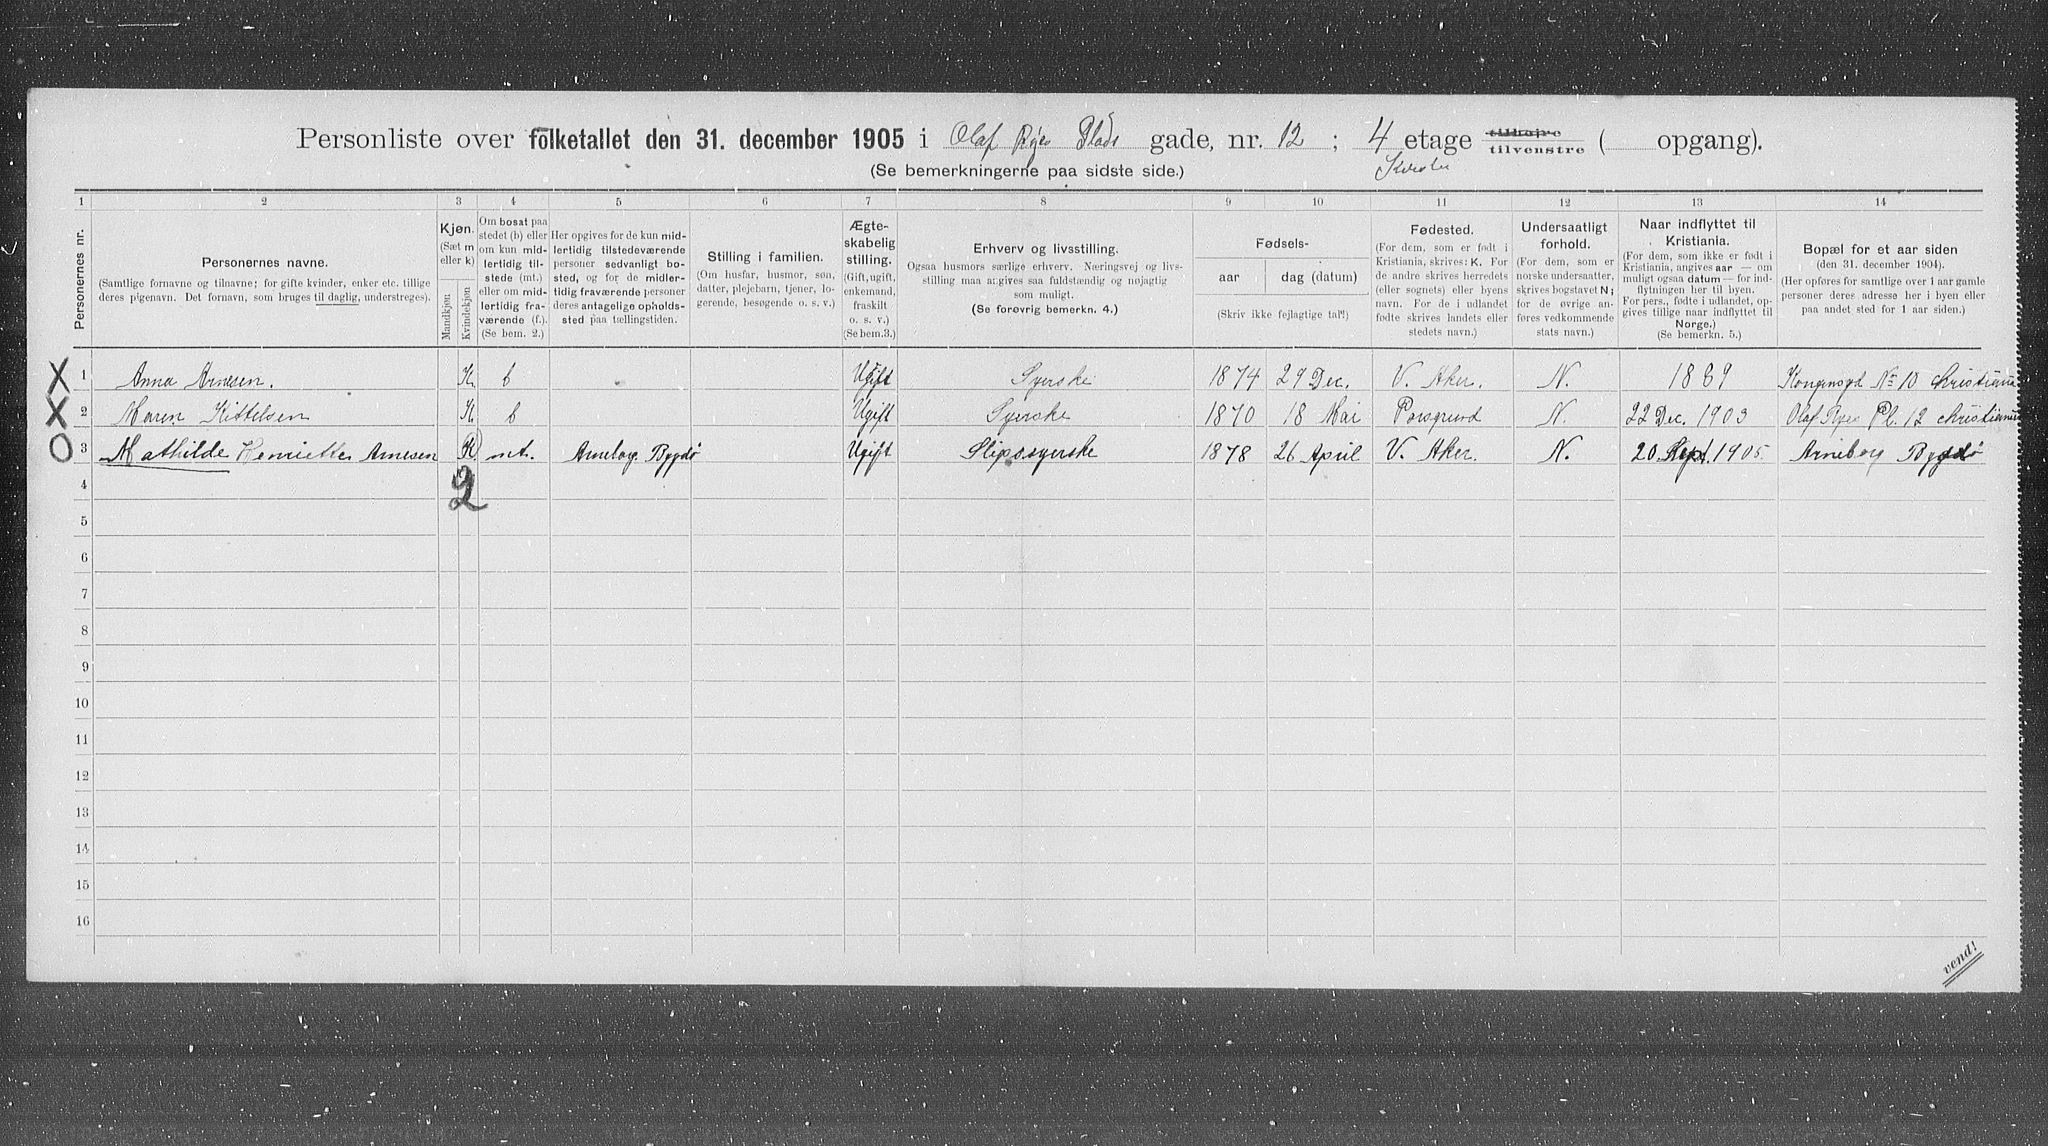 Personliste over folketallet den 31. december 1905 i Olaf Ryes Plads gade, nr. 12 ; 4 etage tilhøjre tilvenstre ( opgang).
(Se bemerkningerne paa sidste side.)
1 2 3 4 5 6 7 8 9 10 11 12 13 14
Personernes nr.
Personernes navne.
(Samtlige fornavne og tilnavne; for gifte kvinder, enker etc. tillige
deres pigenavn. Det fornavn, som bruges til daglig, understreges).
Kjøn.
(Sæt m
eller k)
Mandkjøn
Kvindekjøn
Om bosat paa
stedet (b) eller
om kun mid-
lertidig til-
stede (mt.)
eller om mid-
lertidig fra-
værende (f.).
(Se bem. 2.)
Her opgives for de kun mid-
lertidig tilstedeværende
personer sedvanligt bo-
sted, og for de midler-
tidig fraværende personer
deres antagelige opholds-
sted paa tællingstiden.
Stilling i familien.
(Om husfar, husmor, søn,
datter, plejebarn, tjener, lo-
gerende, besøgende o. s. v.)
Ægte-
skabelig
stilling.
(Gift, ugift,
enkemand,
fraskilt
o. s. v.)
(Se bem.3.)
Erhverv og livsstilling.
Ogsaa husmors særlige erhverv. Næringsvej og livs-
stilling maa angives saa fuldstændig og nøjagtig
som muligt.
(Se forøvrig bemerkn. 4.)
Fødsels-
aar dag (datum)
(Skriv ikke fejlagtige tal!!)
Fødested.
(For dem, som er født i
Kristiania, skrives: K. For
de andre skrives herredets
(eller sognets) eller byens
navn. For de i udlandet
fødte skrives landets eller
stedets navn.)
Undersaatligt
forhold.
(For dem, som er
norske undersaatter,
skrives bogstavet N;
for de øvrige an-
føres vedkommende
stats navn.)
Naar indflyttet til
Kristiania.
(For dem, som ikke er født i
Kristiania, angives aar — om
muligt ogsaa datum — for ind-
flytningen her til byen.
For pers., fødte i udlandet, op-
gives tillige naar indflyttet til
Norge.)
(Se bemerkn. 5.)
Bopæl for et aar siden
(den 31. december 1904).
(Her opføres for samtlige over 1 aar gamle
personer deres adresse her i byen eller
paa andet sted for 1 aar siden.)
X 1 Anna Arnesen. K. b Ugift Syerske 1874 29 Dec. V. Aker. N. 1889 Kongensgd No 10 Christiania
X 2 Maren Kittelsen K b Ugift Syerske 1870 18 Mai Porsgrund N. 22 Dec. 1903 Olaf Ryes Pl. 12 Christiania
O 3 Mathilde Henriette Arnesen K. mt. Arneborg Bygdø Ugift Slipssyerske 1878 26 April V. Aker. N. 20. Sept. 1905. Arneborg Bygdø
2
4
5
6
7
8
9
10
11
12
13
14
15
16
vend!